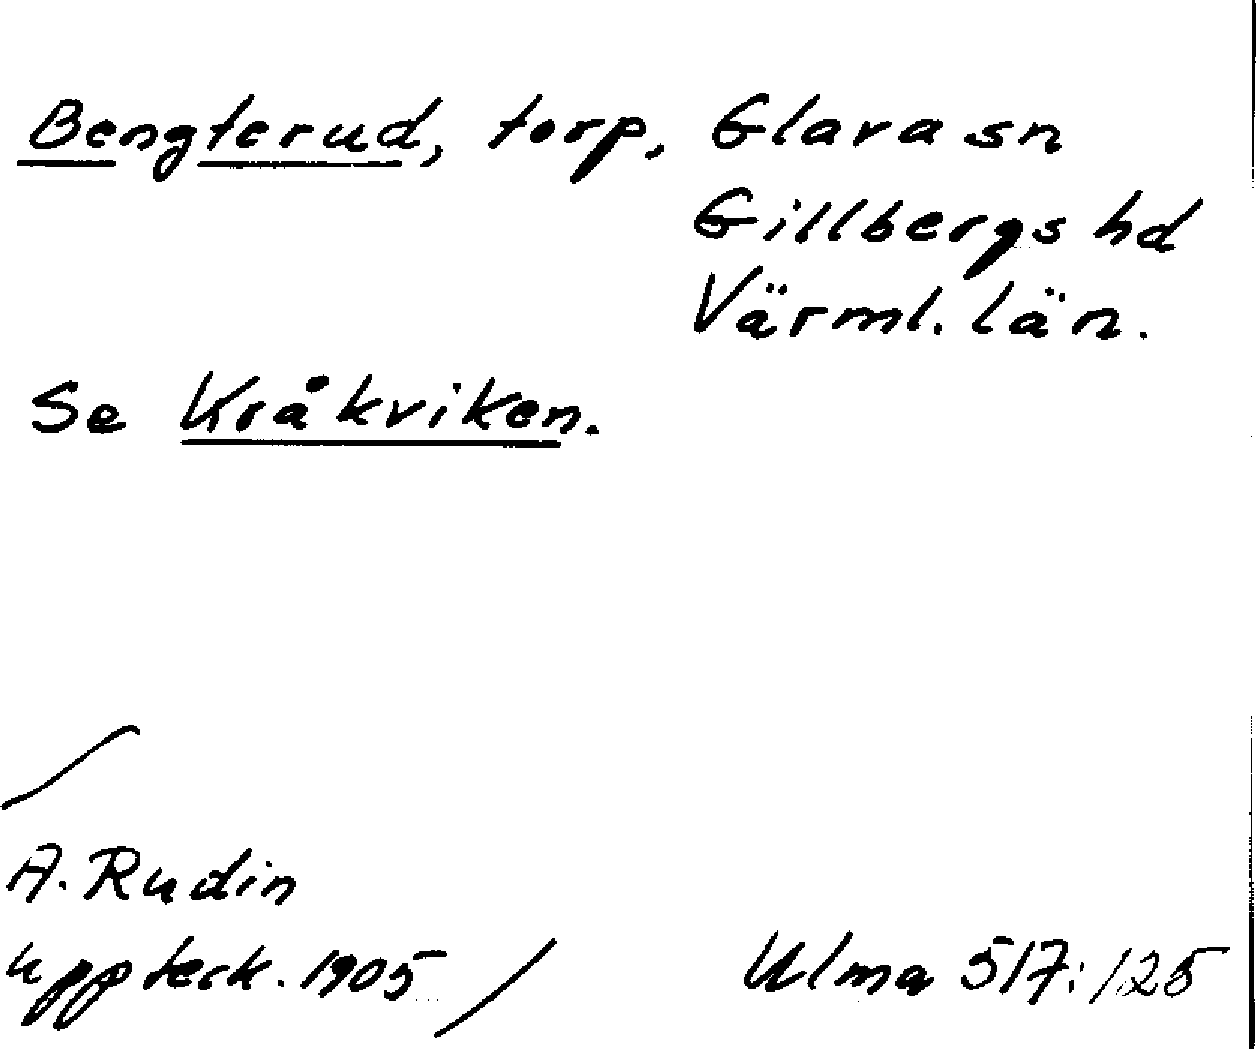 Bengterud, torp, Glava sn
Gillbergs hd
Värml. län.
Se Kråkviken.
A. Rudin
uppteck. 1905
Ulma 517:125